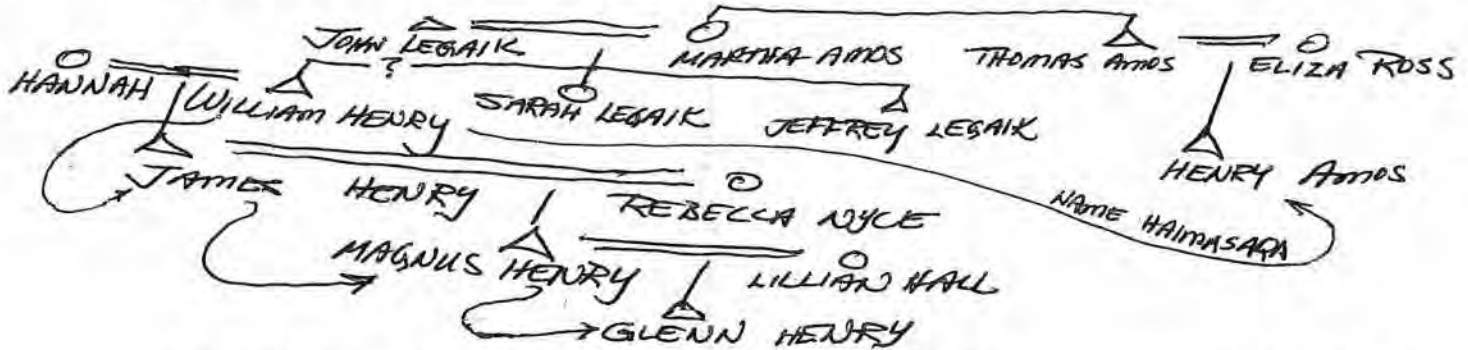 JOHN LEGAIK MARTHA AMOS THOMAS AMOS ELIZA ROSS
?
HANNAH WILLIAM HENRY SARAH LEGAIK JEFFREY LEGAIK
HENRY AMOS
JAMES HENRY REBECCA NYCE
NAME HAIMASAQA
MAGNUS HENRY LILLIAN HALL
GLENN HENRY